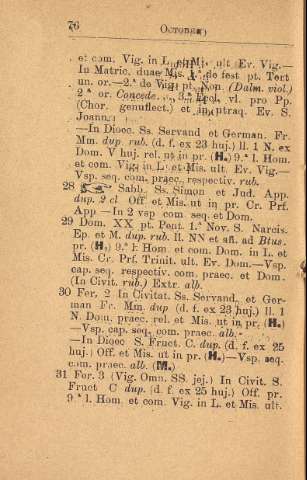 76 OCTOBER
et com. Vig. in L. et Mis. ult. Ev. Vig.—
In Matric. duae Mis. 1.ª de fest pt. Tert
un. or.—2.ª de Vig. pt. Non (Dalm. viol.)
2ª or. Concede 3.ª Eccl. vl. pro Pp.
(Chor. genuflect.) et in utraq. Ev. S.
Joann.
—In Dioec. Ss. Servand et German. Fr.
Mm. dup. rub. (d. f. ex 23 huj.) ll. 1 N. ex
Dom. V huj. rel. ut in pr. (H.) 9.ª l. Hom.
et com. Vig. in L. et Mis. ult. Ev. Vig.—
Vsp. seq. com. praec. respectiv. rub.
28 Sabb. Ss. Simon et Jud. App.
dup. 2 cl Off et Mis. ut in pr. Cr. Prf.
App.—In 2 vsp com seq. et Dom.
29 Dom. XX pt. Pent. 1.ª Nov. S. Narcis.
Ep. et M. dup. rub. ll. NN et añ. ad Btus.
pr. (H.) 9.ª l. Hom et com. Dom. in L. et
Mis. Cr. Prf. Trinit. ult. Ev. Dom.—Vsp.
cap. seq. respectiv. com. praec. et Dom.
(In Civit. rub.) Extr. alb.
30 Fer. 2 In Civitat. Ss. Servand. et Ger-
man Fr. Mm. dup (d. f. ex 23 huj.) ll. 1
N. Dom. praec. rel. et Mis. ut in pr. (H.)
—Vsp. cap. seq. com. praec. alb.
—In Dioec S. Fruct. C. dup. (d. f. ex 25
huj.) Off. et Mis. ut in pr. (H.)—Vsp. seq.
com. praec. alb. (M.)
31 Fer. 3 (Vig. Omn. SS. jej.) In Civit. S.
Fruct C dup. (d. f. ex 25 huj.) Off. pr.
9.ª l. Hom. et com. Vig. in L. et Mis. ult.